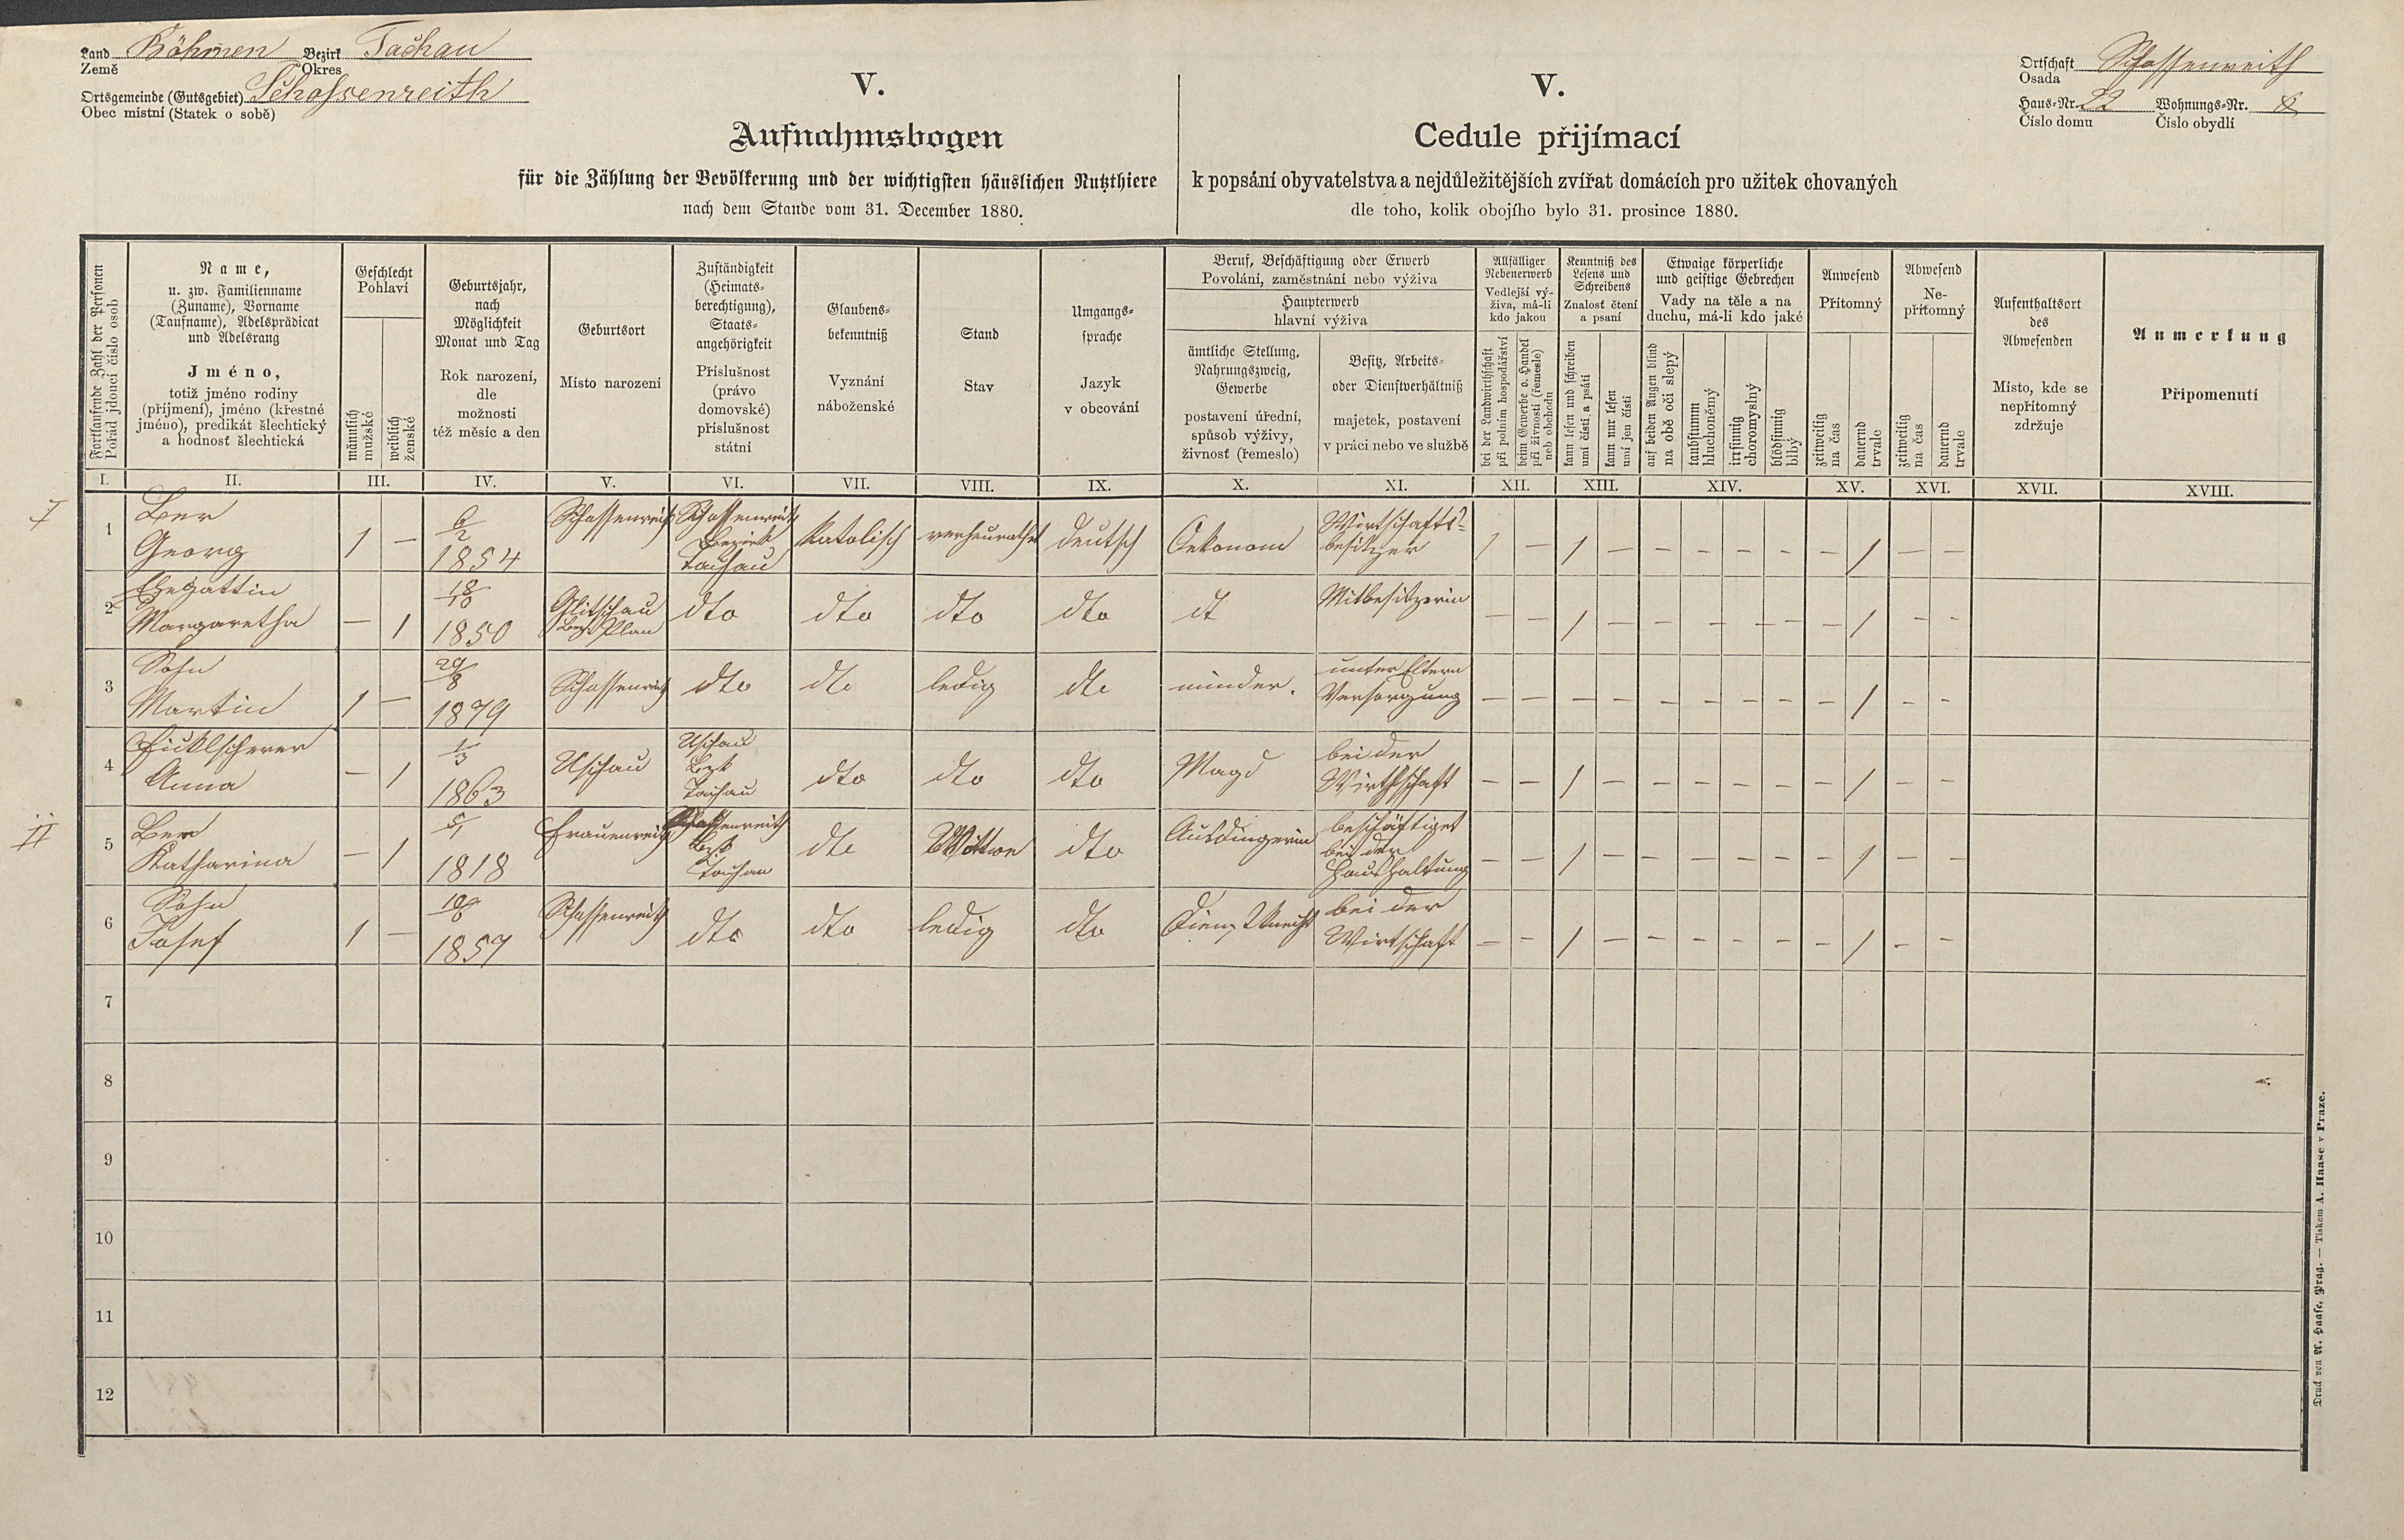 Land Böhmen Bezirk Tachau
Země Okres
Ortsgemeinde (Gutsgebiet) Schossenreith
Obec místní (Statek o sobě)
V.
Aufnahmsbogen
für die Zählung der Bevölkerung und der wichtigsten häuslichen Nutzthiere
nach dem Stande vom 31. December 1880.
V.
Cedule přijímací
k popsání obyvatelstva a nejdůležitějších zvířat domácích pro užitek chovaných
dle toho, kolik obojího bylo 31. prosince 1880.
Ortschaft Schossenreith
Osada
Haus-Nr. 22 Wohnungs-Nr.
Číslo domu Číslo obydlí
Fortlaufende Zahl der Personen
Pořád jdoucí číslo osob
Name,
u. zw. Familienname
(Zuname), Vorname
(Taufname), Adelsprädicat
und Adelsrang
Jméno,
totiž jméno rodiny
(příjmení), jméno (křestné
jméno), predikát šlechtický
a hodnost šlechtická
Geschlecht
Pohlaví
männlich
mužské
weiblich
ženské
Geburtsjahr,
nach
Möglichkeit
Monat und Tag
Rok narození,
dle
možnosti
též měsíc a den
Geburtsort
Místo narození
Zuständigkeit
(Heimats-
berechtigung),
Staats-
angehörigkeit
Příslušnost
(právo
domovské)
příslušnost
státní
Glaubens-
bekenntniß
Vyznání
náboženské
Stand
Stav
Umgangs-
sprache
Jazyk
v obcování
Beruf, Beschäftigung oder Erwerb
Povolání, zaměstnání nebo výživa
Haupterwerb
hlavní výživa
ämtliche Stellung,
Nahrungszweig,
Gewerbe
postavení úřední,
spůsob výživy,
živnosť (řemeslo)
Besitz, Arbeits-
oder Dienstverhältniß
majetek, postavení
v práci nebo ve službě
Allfälliger
Nebenerwerb
Vedlejší vý-
živa, má-li
kdo jakou
bei der Landwirthschaft
při polním hospodářství
beim Gewerbe o. Handel
při živnosti (řemesle)
neb obchodu
Kenntniß des
Lesens und
Schreibens
Znalosť čtení
a psaní
kann lesen und schreiben
umí čísti a psáti
kann nur lesen
umí jen čísti
Etwaige körperliche
und geistige Gebrechen
Vady na těle a na
duchu, má-li kdo jaké
auf beiden Augen blind
na obě oči slepý
taubstumm
hluchoněmý
irrsinnig
choromyslný
blödsinnig
blbý
Anwesend
Přítomný
zeitweilig
na čas
dauernd
trvale
Abwesend
Ne-
přítomný
zeitweilig
na čas
dauernd
trvale
Aufenthaltsort
des
Abwesenden
Místo, kde se
nepřítomný
zdržuje
Anmerkung
Připomenutí
I. II. III. IV. V. VI. VII. VIII. IX. X. XI. XII. XIII. XIV. XV. XVI. XVII. XVIII.
I
1 Ber
Georg 1 – 6/2
1854 Schossenreith Schossenreith
Bezirk
Tachau katolisch verheurathet deutsch Oekonom Wirtschafts-
besitzer 1 – 1 – – – – – – 1 – –
2 Ehegattin
Margaretha – 1 18/10
1850 Glitschau
Bez. Plan dto dto dto dto dt Mitbesitzerin – – 1 – – – – – – 1 – –
3 Sohn
Martin 1 – 29/8
1879 Schossenreith dto dto ledig dto minder. unter Eltern
Versorgung – – – – – – – – – 1 – –
4 Anna – 1 1/3
1863 Uschau Uschau
Bzk
Tachau dto dto dto Magd bei der
Wirthschaft – – 1 – – – – – – 1 – –
II
5 Ber
Katharina – 1 5/1
1818 Frauenreith Schossenreith
Bzk
Tachau dto Wittwe dto Ausdingerin beschäftiget
bei der
Haushaltung – – 1 – – – – – – 1 – –
6 Sohn
Josef 1 –
1857 Schossenreith dto dto ledig dto Dienstknecht bei der
Wirtschaft – – 1 – – – – – – 1 – –
7
8
9
10
11
12
Druck von A. Haase, Prag. — Tiskem A. Haase v Praze.